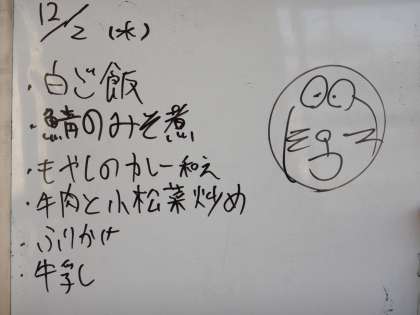 12/2 (水)
・白ご飯
・鯖のみそ煮
・もやしのカレー和え
・牛肉と小松菜炒め
・ふりかけ
・牛乳